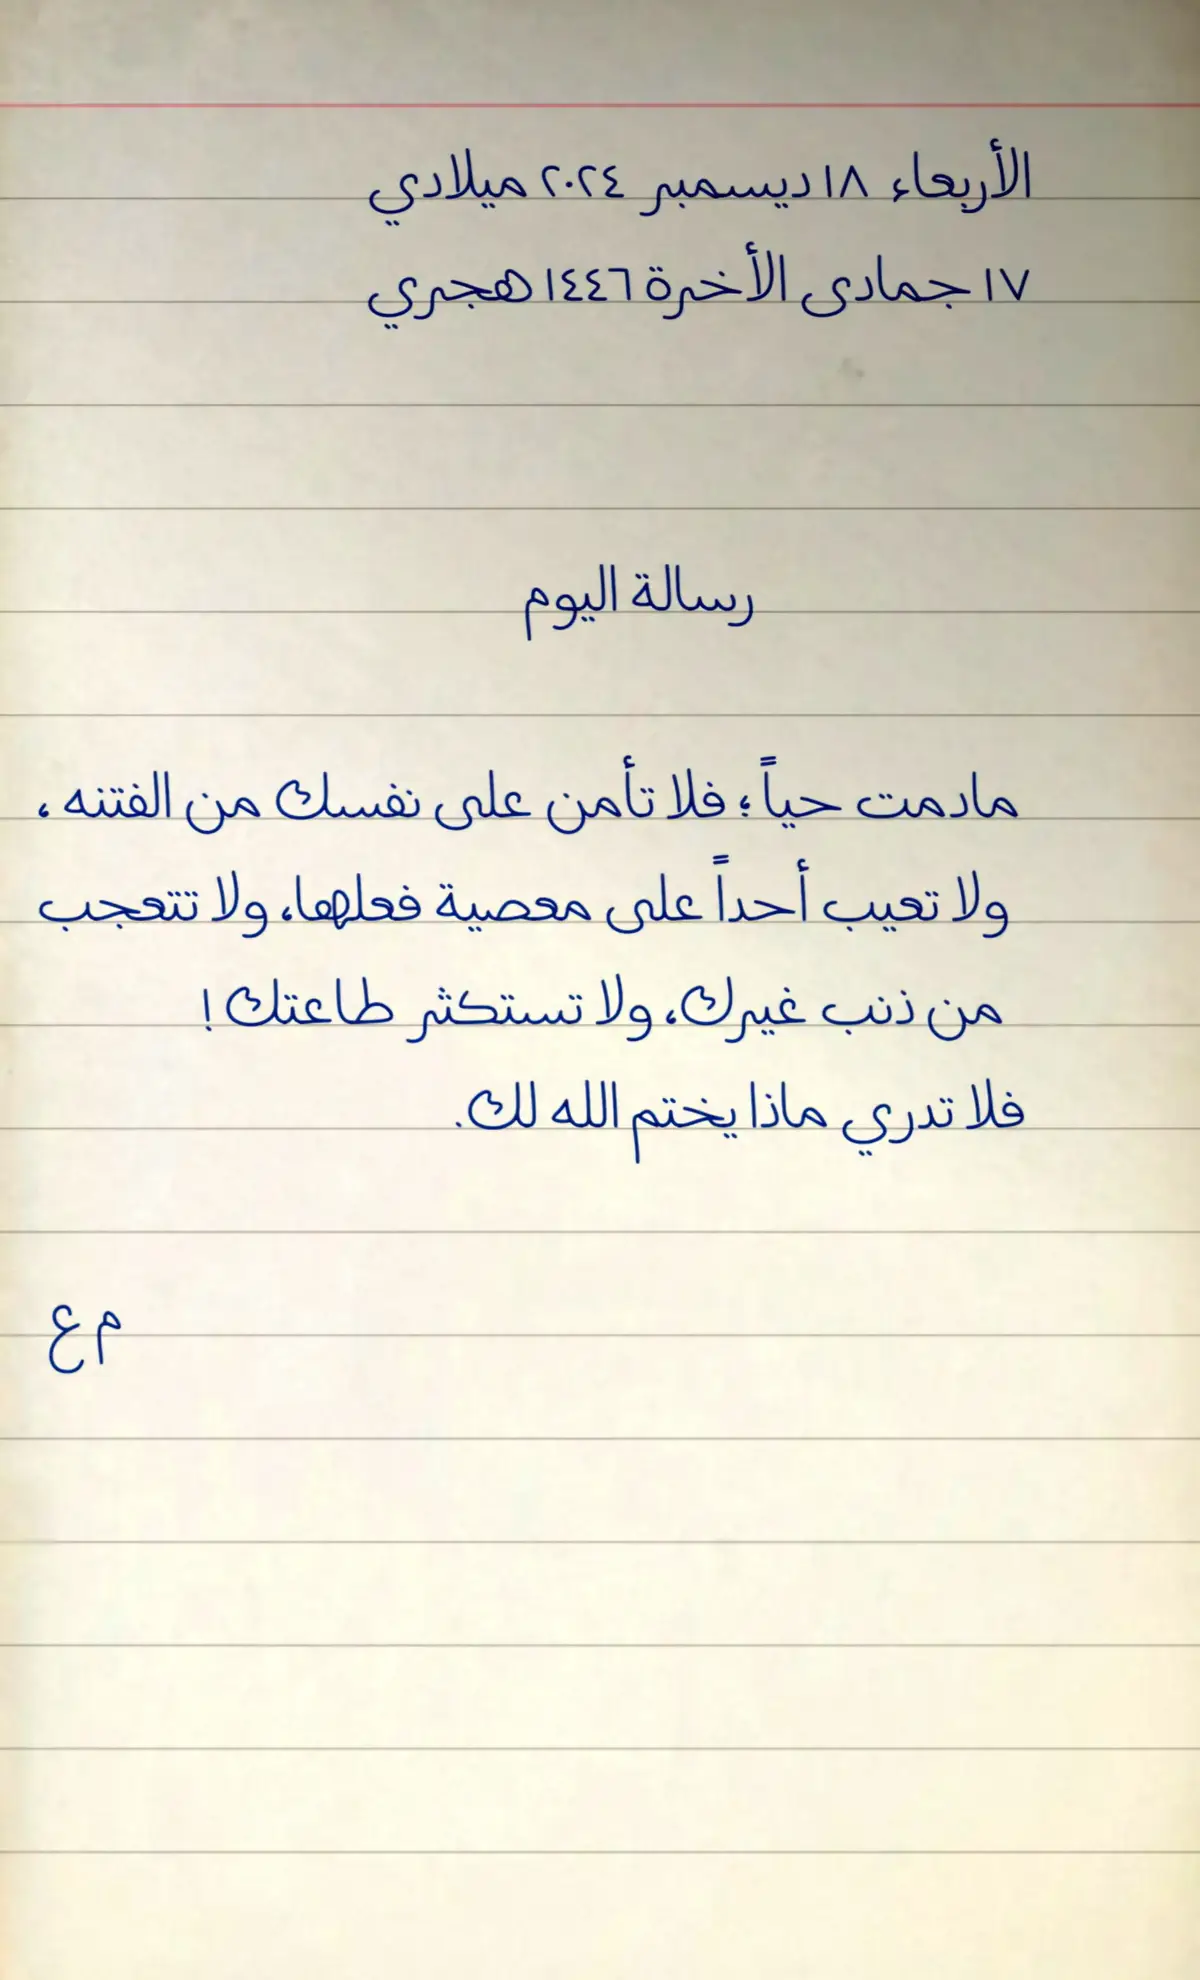 الأربعاء ١٨ ديسمبر ٢٠٢٤ ميلادي
١٧ جمادى الأخرة ١٤٤٦ هجري
رسالة اليوم
مادمت حياً؛ فلا تأمن على نفسك من الفتنه،
ولا تعيب أحداً على معصية فعلها، ولا تتعجب
من ذنب غيرك، ولا تستكثر طاعتك!
فلا تدري ماذا يختم الله لك.
م ع